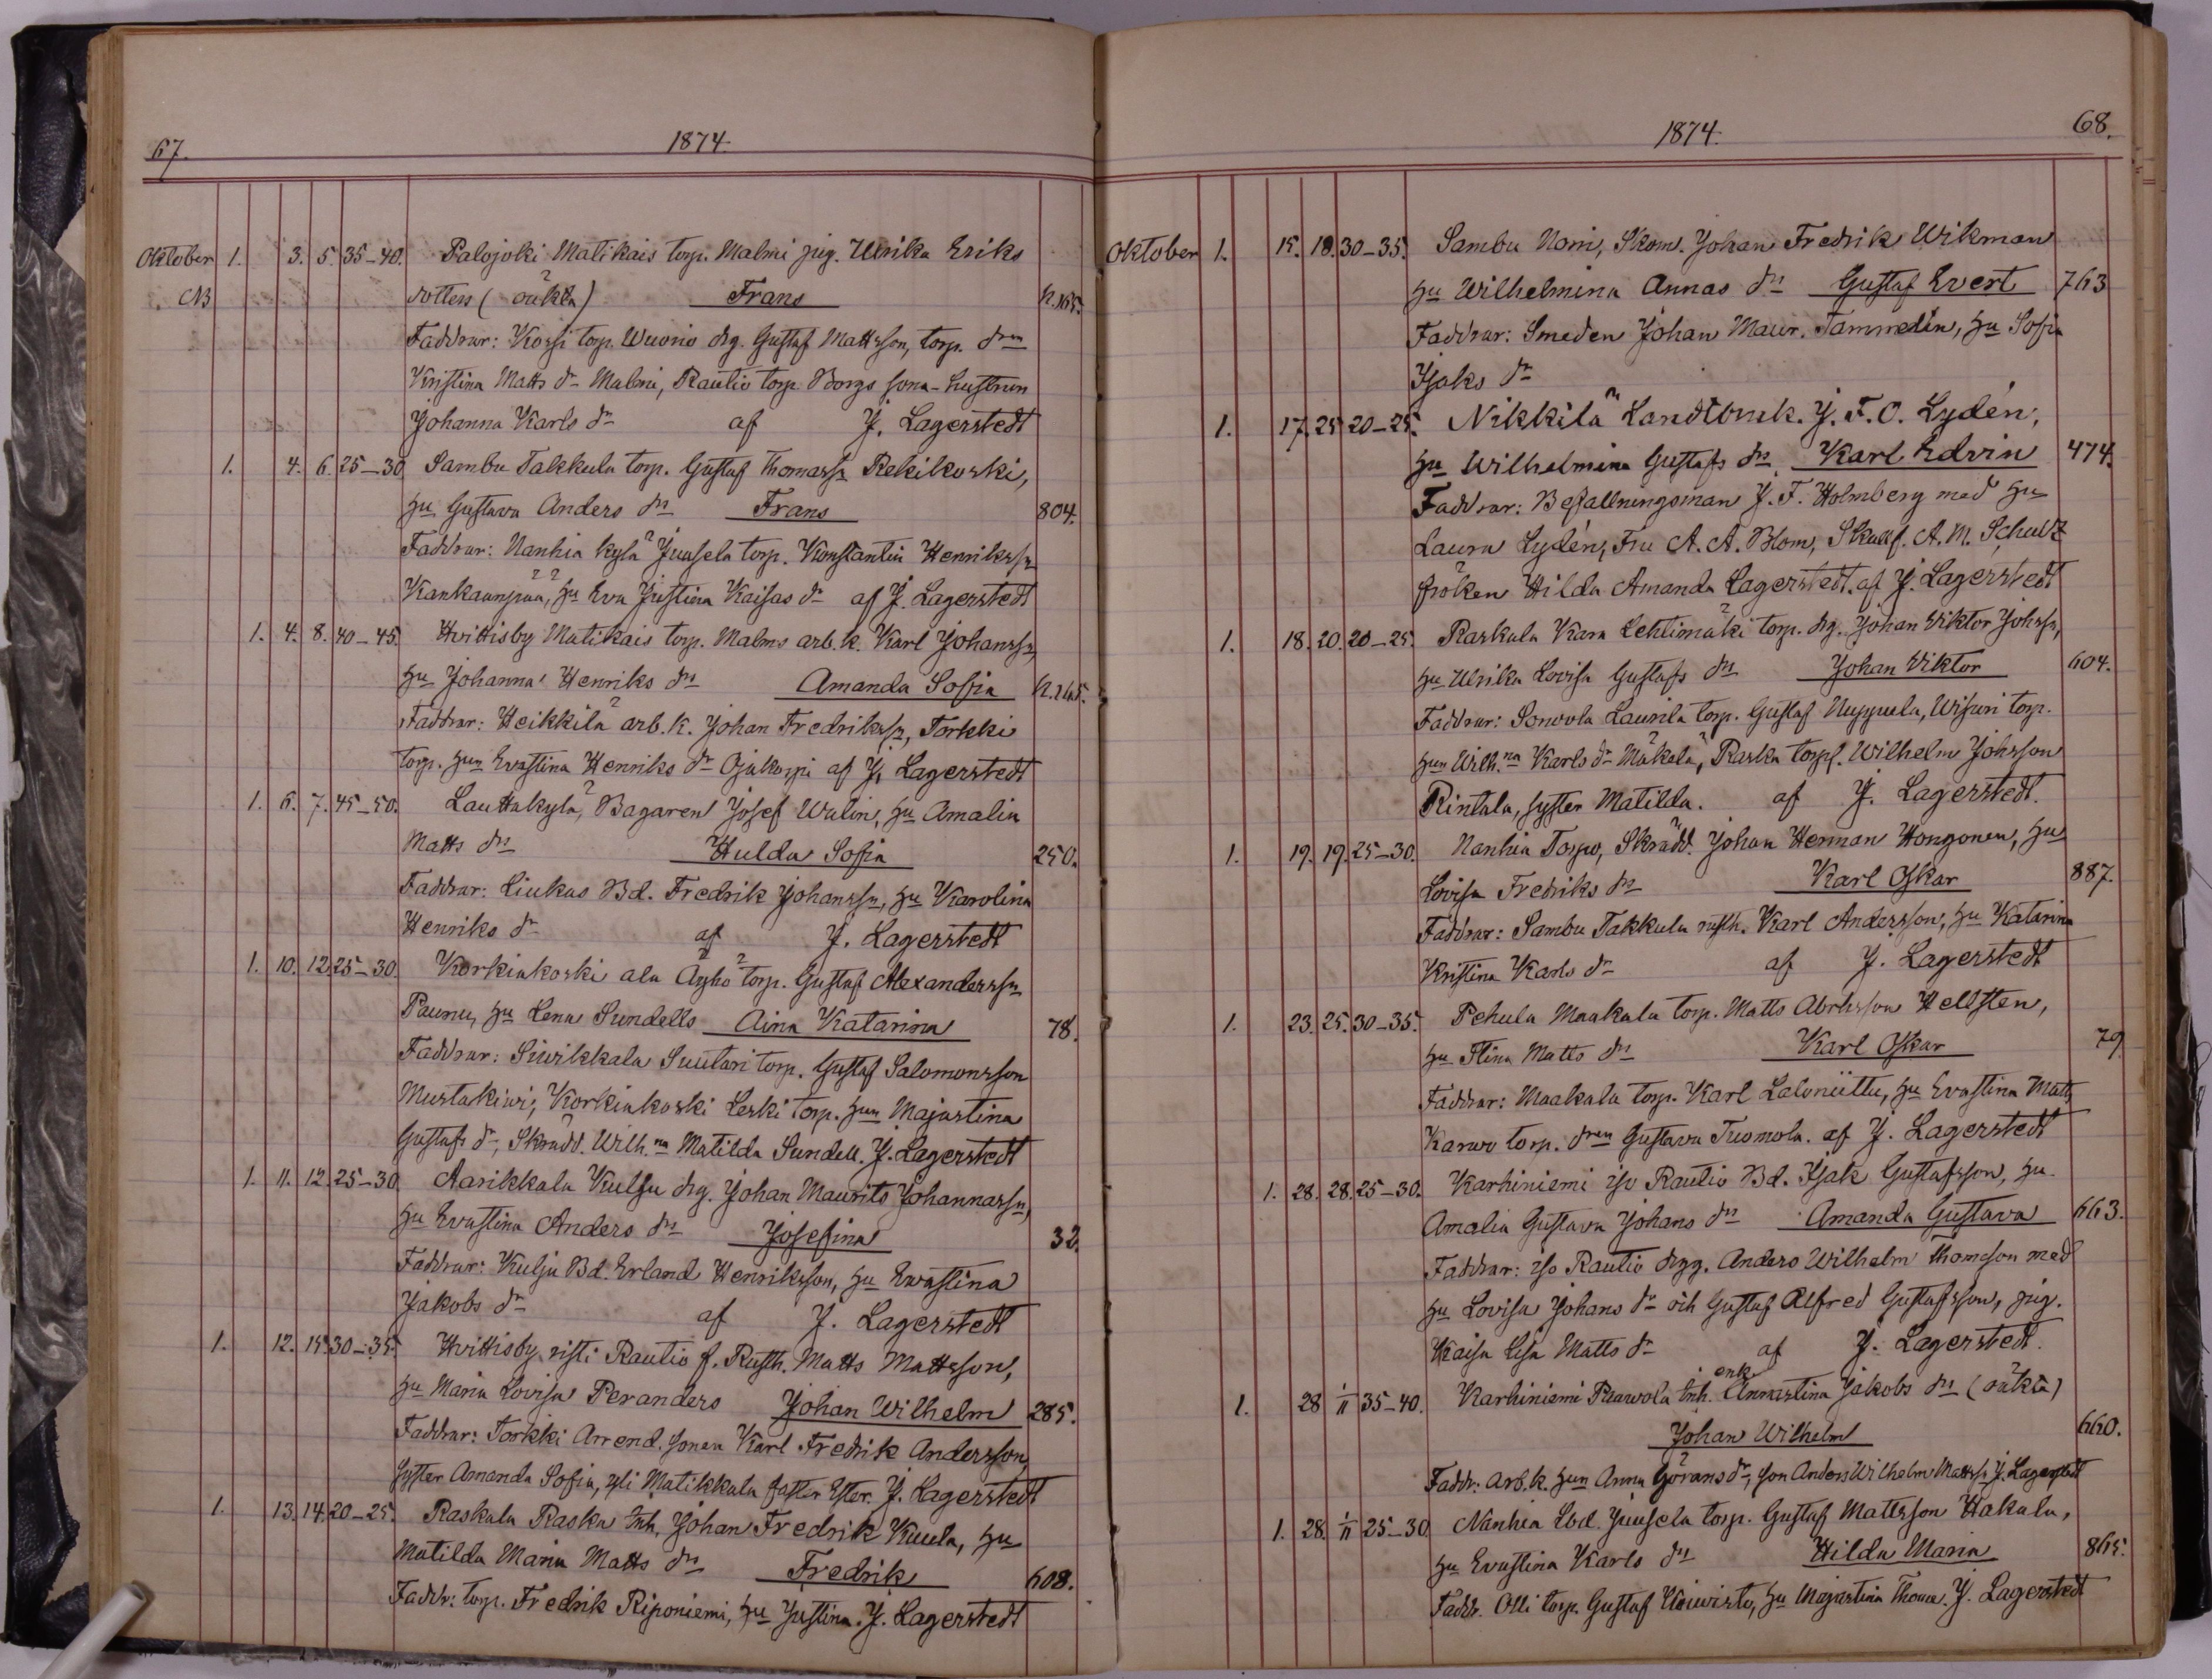 67. 1874.
Oktober 1. 3. 5. 35–40. Palojoki Matikais torp. Malmi pig. Ulrika Eriks
dotters (oäkta) Frans h.165.
Faddrar: Korsi torp. Wuorio drg. Gustaf Mattsson, torp. drn
Kristina Matts dr Malmi, Rautio torp. Borgs sona-hustrun
Johanna Karls dr af J. Lagerstedt
1. 4. 6. 25–30 Sambu Takkula torp. Gustaf Thomassn Rekikoski,
hu Gustava Anders drs Frans 804.
Faddrar: Nanhia kylä Juusela torp. Konstantin Henrikssn
Kankaanpää, hu Eva Justina Kaisas dr af J. Lagerstedt
1. 4. 8. 40–45. Hvittisby Matikais torp. Malms arb.k. Karl Johanssn,
hu Johanna Henriks drs Amanda Sofia h.165.
Faddrar: Heikkilä arb.k. Johan Fredrikssn, Torkki
torp. hun Evastina Henriks dr Ojakorpi af J. Lagerstedt
1. 6. 7. 45–50. Lauttakylä, Bagaren Josef Walin, hu Amalia
Matts drs Hulda Sofia 250.
Faddrar: Liukas Bd. Fredrik Johanssn, hu Karolina
Henriks dr af J. Lagerstedt
1. 10. 12. 25–30. Korkiakoski ala Äyhö torp. Gustaf Alexanderssn
Paunu, hu Lena Sundells Aina Katarina 78.
Faddrar: Siwikkala Suutari torp. Gustaf Salomonsson
Mustakiwi, Korkiakoski Leski torp. hun Majastina
Gustafs dr, Skrädd. Wilh.na Matilda Sundell. J. Lagerstedt
1. 11. 12. 25–30. Aarikkala Kulju drg. Johan Maurits Johannessn,
hu Evastina Anders drs Josefina 32.
Faddrar: Kulju Bd. Erland Henriksson, hu Ewastina
Jakobs dr af J. Lagerstedt
1. 12. 15. 30–35. Hvittisby risti Rautio f. Rusth. Matts Mattsson,
hu Maria Lovisa Peranders Johan Wilhelm 285.
Faddrar: Torkki Arrend. sonen Karl Fredrik Andersson,
syster Amanda Sofia, yli Matikkala faster Ester. J. Lagerstedt
1. 13. 14. 20–25. Raskala Raska Inh. Johan Fredrik Kuula, hu
Matilda Maria Matts drs Fredrik 608.
Faddr: torp. Fredrik Riponiemi, hu Justina. J. Lagerstedt
1874. 68.
Oktober 1. 15. 18. 30–35. Sambu Noni, Skom. Johan Fredrik Wikman
hu Wilhelmina Annas drs Gustaf Evert 763
Faddrar: Smeden Johan Maur. Tammelin, hu Sofia
Isaks dr
1. 17. 25 20–25. Nikkilä Landtbruk. J. F. O. Lydén,
hu Wilhelmina Gustafs drs Karl Edvin 474.
Faddrar: Befallningsman J. F. Holmberg med hu
Laura Lydén, Fru A. A. Blom, A. M. Schultz
fröken Hilda Amanda Lagerstedt. af J. Lagerstedt
1. 18. 20. 20–25. Raskala Kara Lehtimäki torp. drg. Johan Viktor Johssn,
hu Ulrika Lovisa Gustafs drs Johan Viktor 604.
Faddrar: Sonvola Laurila torp. Gustaf Uuppula, Wisuri torp.
hun Wilh.na Karls dr Mäkelä, Raska torps. Wilhelm Johsson
Rintala, syster Matilda. af J. Lagerstedt.
1. 19. 19. 25–30. Nanhia Torpo, Skrädd. Johan Herman Hongonen, hu
Lovisa Fredriks drs Karl Oskar 887.
Faddrar: Sambu Takkula rusth. Karl Andersson, hu Katarina
Kristina Karls dr af J. Lagerstedt
1. 23. 25. 30–35. Pehula Maakala torp. Matts Abrahsson Hellsten,
hu Stina Matts drs Karl Oskar 79
Faddrar: Maakala torp. Karl Laloniittu, hu Evastina Matts
Karwo torp. drn Gustava Tuomola. af J. Lagerstedt
1. 28. 28. 25–30. Karhiniemi iso Rautio Bd. Isak Gustafsson, hu
Amalia Gustava Johans drs Amanda Gustava 663.
Faddrar: iso Rautio drgg. Anders Wilhelm Thomsson med
hu Lovisa Johans dr och Gustaf Alfred Gustafsson, pig.
Kaisa Lisa Matts dr af J. Lagerstedt.
1. 28 1/11 35–40. Karhiniemi Paawola Inh. enk. Annastina Jakobs drs (oäkta)
Johan Wilhelm 660.
Faddr: Arb.k. hun Anna Görans dr, son Anders Wilhelm Mattssn J. Lagerstedt
1. 28. 1/11 25–30 Nanhia Lbd. Juusela torp. Gustaf Mattsson Hakala,
hu Evastina Karls drs Hilda Maria 865.
Faddr. Olli torp. Gustaf Koiwisto, hu Majastina Thom. J. Lagerstedt